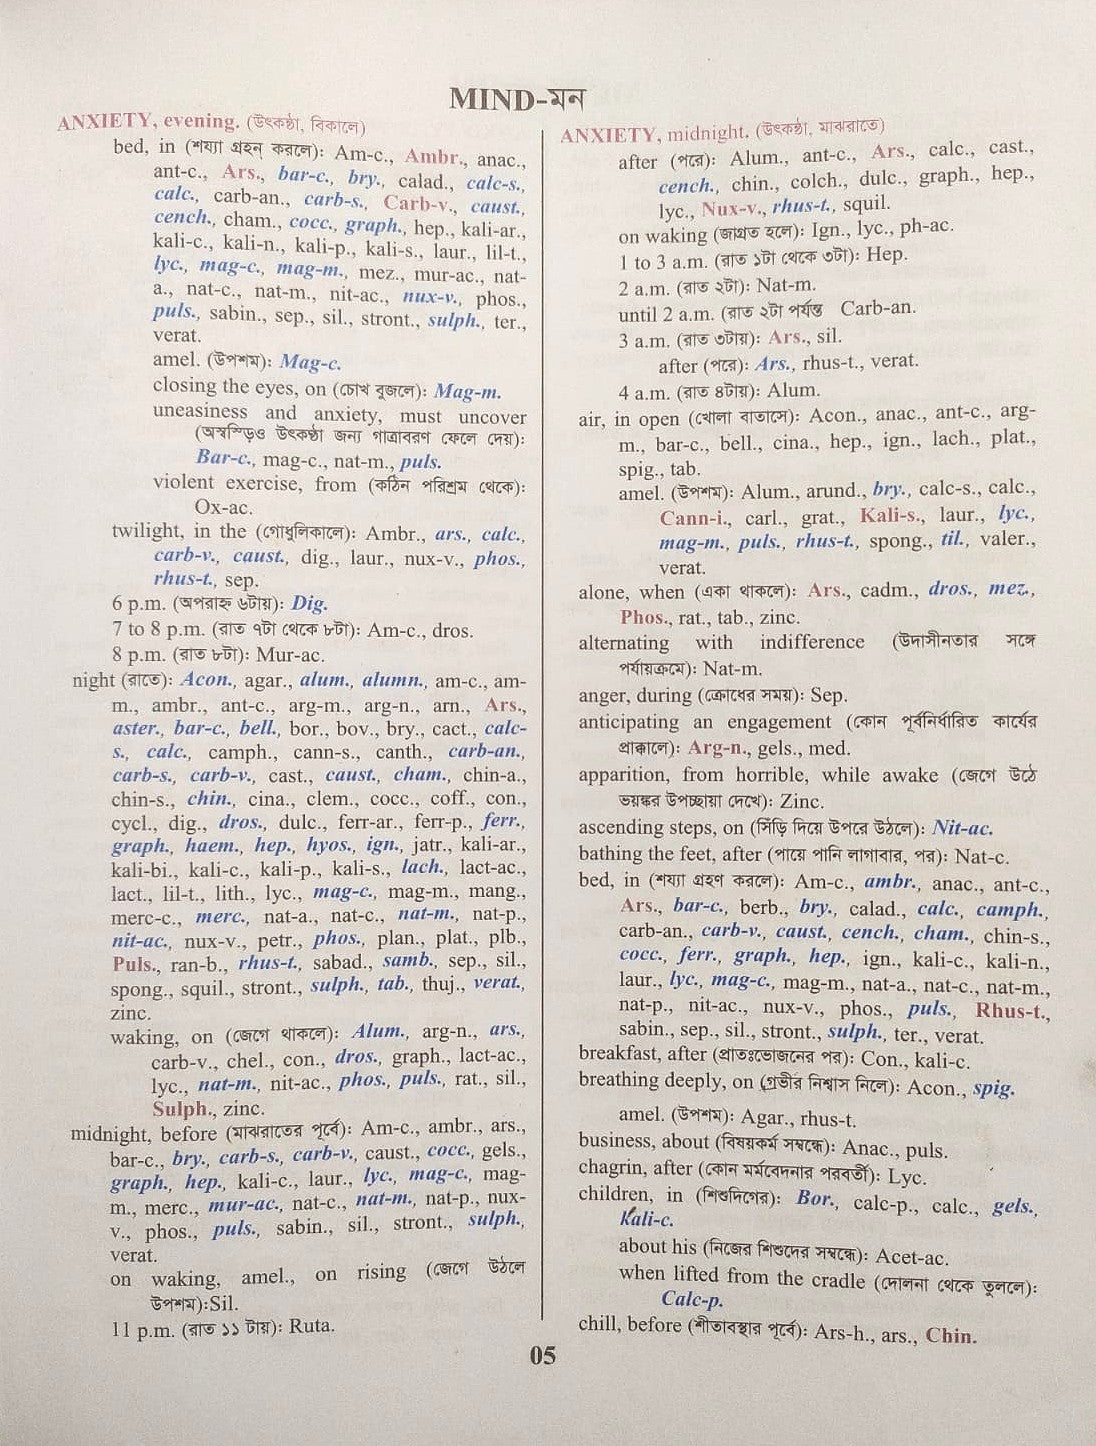 MIND-মন
ANXIETY, evening. (উৎকণ্ঠা, বিকালে)
bed, in (শয্যা গ্রহন্ করলে): Am-c., Ambr., anac.,
ant-c., Ars., bar-c., bry., calad., calc-s.,
calc., carb-an., carb-s., Carb-v., caust.,
cench., cham., cocc., graph., hep., kali-ar.,
kali-c., kali-n., kali-p., kali-s., laur., lil-t.,
lyc., mag-c., mag-m., mez., mur-ac., nat-
a., nat-c., nat-m., nit-ac., nux-v., phos.,
puls., sabin., sep., sil., stront., sulph., ter.,
verat.
amel. (উপশম): Mag-c.
closing the eyes, on (চোখ বুজলে): Mag-m.
uneasiness and anxiety, must uncover
(অস্বস্তিও উৎকণ্ঠা জন্য গাত্রাবরণ ফেলে দেয়):
Bar-c., mag-c., nat-m., puls.
violent exercise, from (কঠিন পরিশ্রম থেকে):
Ox-ac.
twilight, in the (গোধুলিকালে): Ambr., ars., calc.,
carb-v., caust., dig., laur., nux-v., phos.,
rhus-t., sep.
6 p.m. (অপরাহ্ন ৬টায়): Dig.
7 to 8 p.m. (রাত ৭টা থেকে ৮টা): Am-c., dros.
8 p.m. (রাত ৮টা): Mur-ac.
night (রাতে): Acon., agar., alum., alumn., am-c., am-
m., ambr., ant-c., arg-m., arg-n., arn., Ars.,
aster., bar-c., bell., bor., bov., bry., cact., calc-
s., calc., camph., cann-s., canth., carb-an.,
carb-s., carb-v., cast., caust., cham., chin-a.,
chin-s., chin., cina., clem., cocc., coff., con.,
cycl., dig., dros., dulc., ferr-ar., ferr-p., ferr.,
graph., haem., hep., hyos., ign., jatr., kali-ar.,
kali-bi., kali-c., kali-p., kali-s., lach., lact-ac.,
lact., lil-t., lith., lyc., mag-c., mag-m., mang.,
merc-c., merc., nat-a., nat-c., nat-m., nat-p.,
nit-ac., nux-v., petr., phos., plan., plat., plb.,
Puls., ran-b., rhus-t., sabad., samb., sep., sil.,
spong., squil., stront., sulph., tab., thuj., verat.,
zinc.
waking, on (জেগে থাকলে): Alum., arg-n., ars.,
carb-v., chel., con., dros., graph., lact-ac.,
lyc., nat-m., nit-ac., phos., puls., rat., sil.,
Sulph., zinc.
midnight, before (মাঝরাতের পূর্বে): Am-c., ambr., ars.,
bar-c., bry., carb-s., carb-v., caust., cocc., gels.,
graph., hep., kali-c., laur., lyc., mag-c., mag-
m., merc., mur-ac., nat-c., nat-m., nat-p., nux-
v., phos., puls., sabin., sil., stront., sulph.,
verat.
on waking, amel., on rising (জেগে উঠলে
উপশম):Sil.
11 p.m. (রাত ১১ টায়): Ruta.
ANXIETY, midnight. (উৎকণ্ঠা, মাঝরাতে)
after (পরে): Alum., ant-c., Ars., calc., cast.,
cench., chin., colch., dulc., graph., hep.,
lyc., Nux-v., rhus-t., squil.
on waking (জাগ্রত হলে): Ign., lyc., ph-ac.
1 to 3 a.m. (রাত ১টা থেকে ৩টা): Hep.
2 a.m. (রাত ২টা): Nat-m.
until 2 a.m. (রাত ২টা পর্যন্ত Carb-an.
3 a.m. (রাত ৩টায়): Ars., sil.
after (পরে): Ars., rhus-t., verat.
4 a.m. (রাত ৪টায়): Alum.
air, in open (খোলা বাতাসে): Acon., anac., ant-c., arg-
m., bar-c., bell., cina., hep., ign., lach., plat.,
spig., tab.
amel. (উপশম): Alum., arund., bry., calc-s., calc.,
Cann-i., carl., grat., Kali-s., laur., lyc.,
mag-m., puls., rhus-t., spong., til., valer.,
verat.
alone, when (একা থাকলে): Ars., cadm., dros., mez.,
Phos., rat., tab., zinc.
alternating with indifference (উদাসীনতার সঙ্গে
পর্যায়ক্রমে): Nat-m.
anger, during (ক্রোধের সময়): Sep.
anticipating an engagement (কোন পূর্বনির্ধারিত কার্যের
প্রাক্কালে): Arg-n., gels., med.
apparition, from horrible, while awake (জেগে উঠে
ভয়ঙ্কর উপচ্ছায়া দেখে): Zinc.
ascending steps, on (সিঁড়ি দিয়ে উপরে উঠলে): Nit-ac.
bathing the feet, after (পায়ে পানি লাগাবার, পর): Nat-c.
bed, in (শয্যা গ্রহণ করলে): Am-c., ambr., anac., ant-c.,
Ars., bar-c., berb., bry., calad., calc., camph.,
carb-an., carb-v., caust., cench., cham., chin-s.,
cocc., ferr., graph., hep., ign., kali-c., kali-n.,
laur., lyc., mag-c., mag-m., nat-a., nat-c., nat-m.,
nat-p., nit-ac., nux-v., phos., puls., Rhus-t.,
sabin., sep., sil., stront., sulph., ter., verat.
breakfast, after (প্রাতঃভোজনের পর): Con., kali-c.
breathing deeply, on (গভীর নিশ্বাস নিলে): Acon., spig.
amel. (উপশম): Agar., rhus-t.
business, about (বিষয়কর্ম সম্বন্ধে): Anac., puls.
chagrin, after (কোন মর্মবেদনার পরবর্তী): Lyc.
children, in (শিশুদিগের): Bor., calc-p., calc., gels.,
Kali-c.
about his (নিজের শিশুদের সম্বন্ধে): Acet-ac.
when lifted from the cradle (দোলনা থেকে তুললে):
Calc-p.
chill, before (শীতাবস্থার পূর্বে): Ars-h., ars., Chin.
05